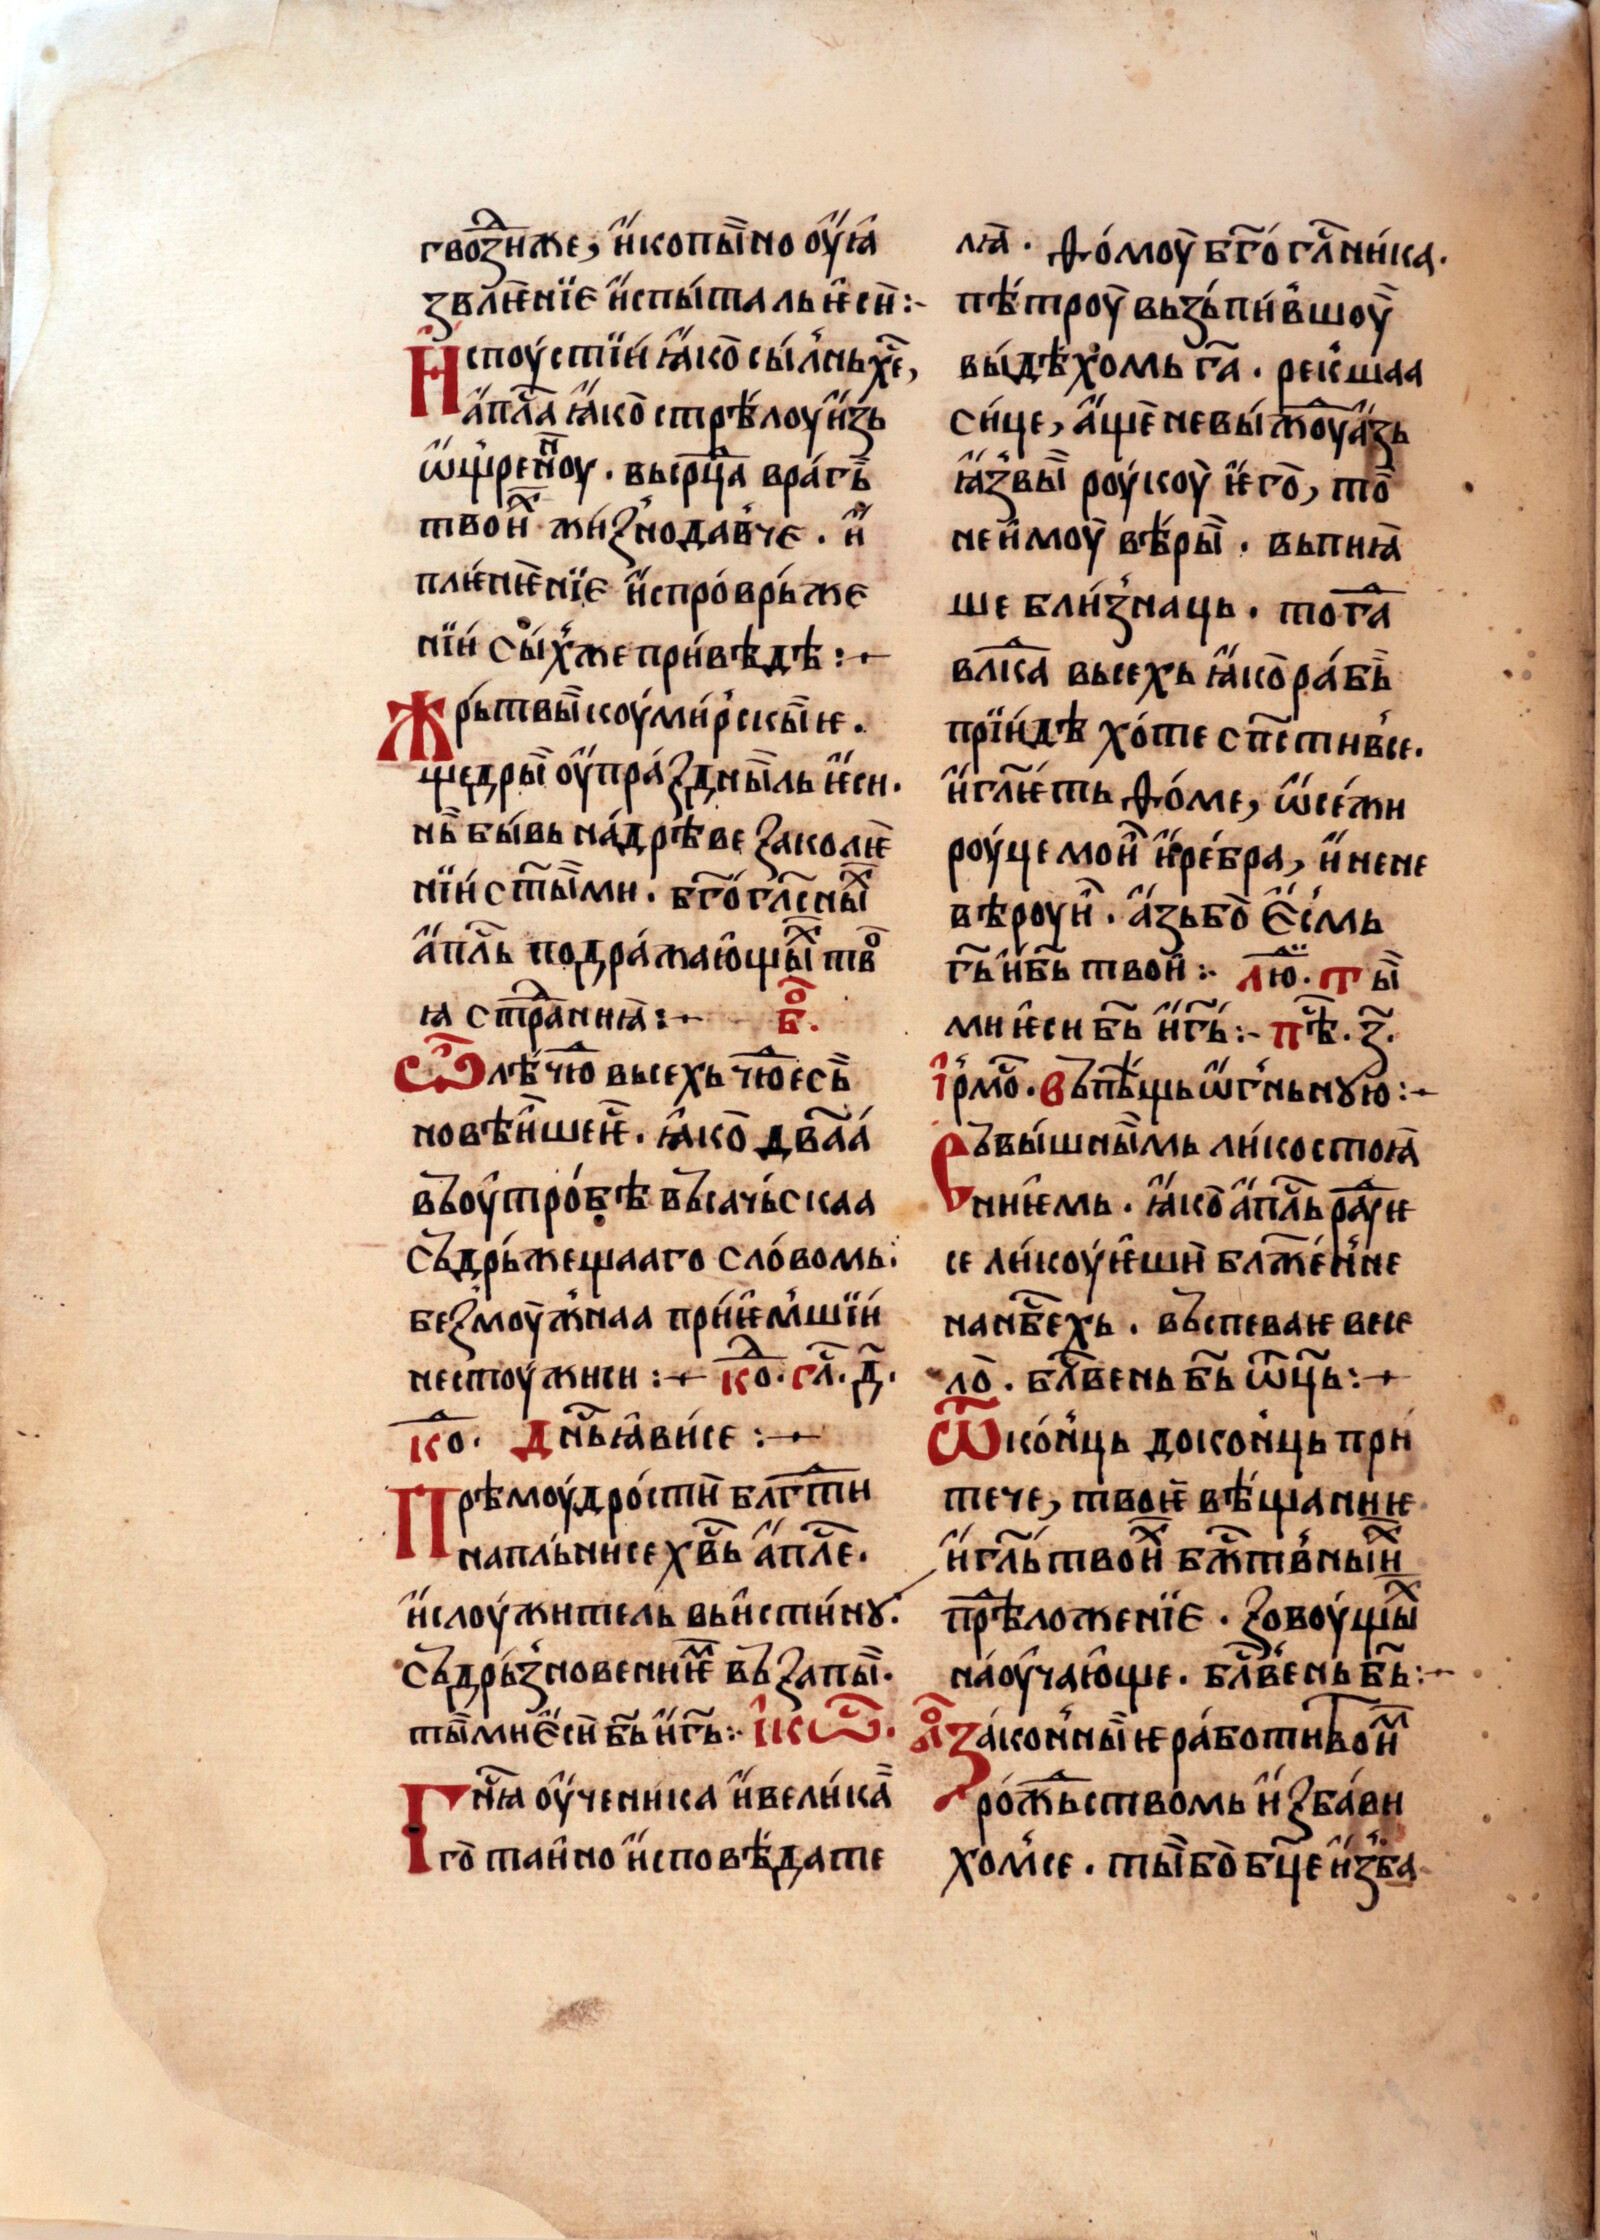 гво́з̑ниже, и҆ копы́но оу҆ꙗ
звлѥ́нїѥ и҆спы́таль ѥ҆сѝ :-
И҆споу́стїи ꙗ҆́ко̀ сы́л̾нь хе҃,
а҆́пла҃ ꙗ҆́ко̀ стрѣ́лоу и҆́зь
ѿщ̾рен̾ноу . вьср҃ца вра́гь̀
твои́х жи́з̾нода́в̾че . и҆̀
плѥ́нѥ́нїѥ и҆спро́врь́же
нїи́ сы́х̾же при́вѣдѣ :⁓
Жрь́твы̀ коу́ми́р̾скы̀ѥ .
щедры̀ оу҆пра́здны̀ль ѥ҆си .
нь̀ бы́вь на́дрѣ́ве заколѥ̀
нїи́ ст҃ы̀ми . бг҃о́гл҃сны́х
а҆́пл҃ь подра́жаю҆щы́х тво
ꙗ стр҃а́нниꙗ :⁓ б҃о.
Ѽ лѣ́ чю҃ вьсехь чю҃есь̀
новѣ́и҆шеѥ̀ . ꙗ҆́ко̀ два҃а́
вьоу҆тро́бѣ вьсачь́скаа
сьдрь́жещааго сло́вомь .
без̾моу́ж̾наа при́ѥ҆м̾шїи́
нестоу́жиси :⁓ ко. гл҃. д҃.
ко. дн҃ьꙗ҆ви́се :⁓
Прѣмоу́дро́стѝ бл҃гти
напль́нисе хв҃ь а҆́пл҃е .
и҆слоу́житель вьи́сти́нꙋ .
сьдрь́з̾новениѥ̀м вьзапы̀ .
ты̀мнѥ҆сѝ бь҃ и҆гь҃ :- і҆кѡ҃с.
Гн҃ꙗ оу҆́чени́ка и҆́вели́ка̀
го̀ таи҆но и҆́сповѣ́дате
лꙗ̀ . Ѳо́моу̀ бг҃о́гл҃ни́ка .
пѣ́троу̀ вьзь́пи́в̾шоу̀
вы́дѣ́х̾омь га҃ . рек̾шаа
си́це, а҆́щѐ невы́жоу а҆́зь
ꙗ҆́з̾вы̀ роу́коу̀ ѥ҆го̀, то̀
неи́моу̀ вѣ́ры̀ . вьпиꙗ̀
ше бли́з̾наць . тог҃а
влк҃а вьсехь ꙗ҆́ко̀ ра́бь̀
прїи́дѣ хо́те сп҃стив̾се .
и҆гл҃ѥть Ѳо́ме, ѡ҆се́жи
роу́це мои̑ и҆́ре́бра, и҆́нене
вѣ́роуи̑ . а҆́зьбо̀ ѥ҆́смь
гь҃ и҆бь҃ твои̑ :- лю҃. ты̀
мнѥ҆си бь҃ и҆гь҃ :- пѣ҃. з҃.
І҆р̾мо҃. вьпѣ́щь ѡ҆г̾ньнꙋю :⁓
Съвы́шны̀мь ли́костоꙗ̀
ниѥ҆мь . ꙗ҆́ко̀ а҆́пл҃ь ра҃уѥ
се ли́коу́ѥ҆шѝ бл҃же́н̾не
нанб҃ехь . вьспеваѥ весе
ло̀ . бл҃вень бь҃ ѿц҃ь :⁓
Ѿ ко́н̾ць доко́н̾ць при́
тече, твоѥ̀ вѣ́щаниѥ
и҆гл҃ь твои́х бж҃ств̾ны́их
прѣ҃ложенїѥ . зовоу́щы́х
на́оу҆чаю҆ще . бл҃ве́нь бь҃ :⁓
Ѿ за́кон̾ны̀ѥ ра́боти твои́м
ро́ж҃ьствомь и҆з̾ба́ви
хом̾се . ты̀бо̀ бц҃е и҆з̾ба